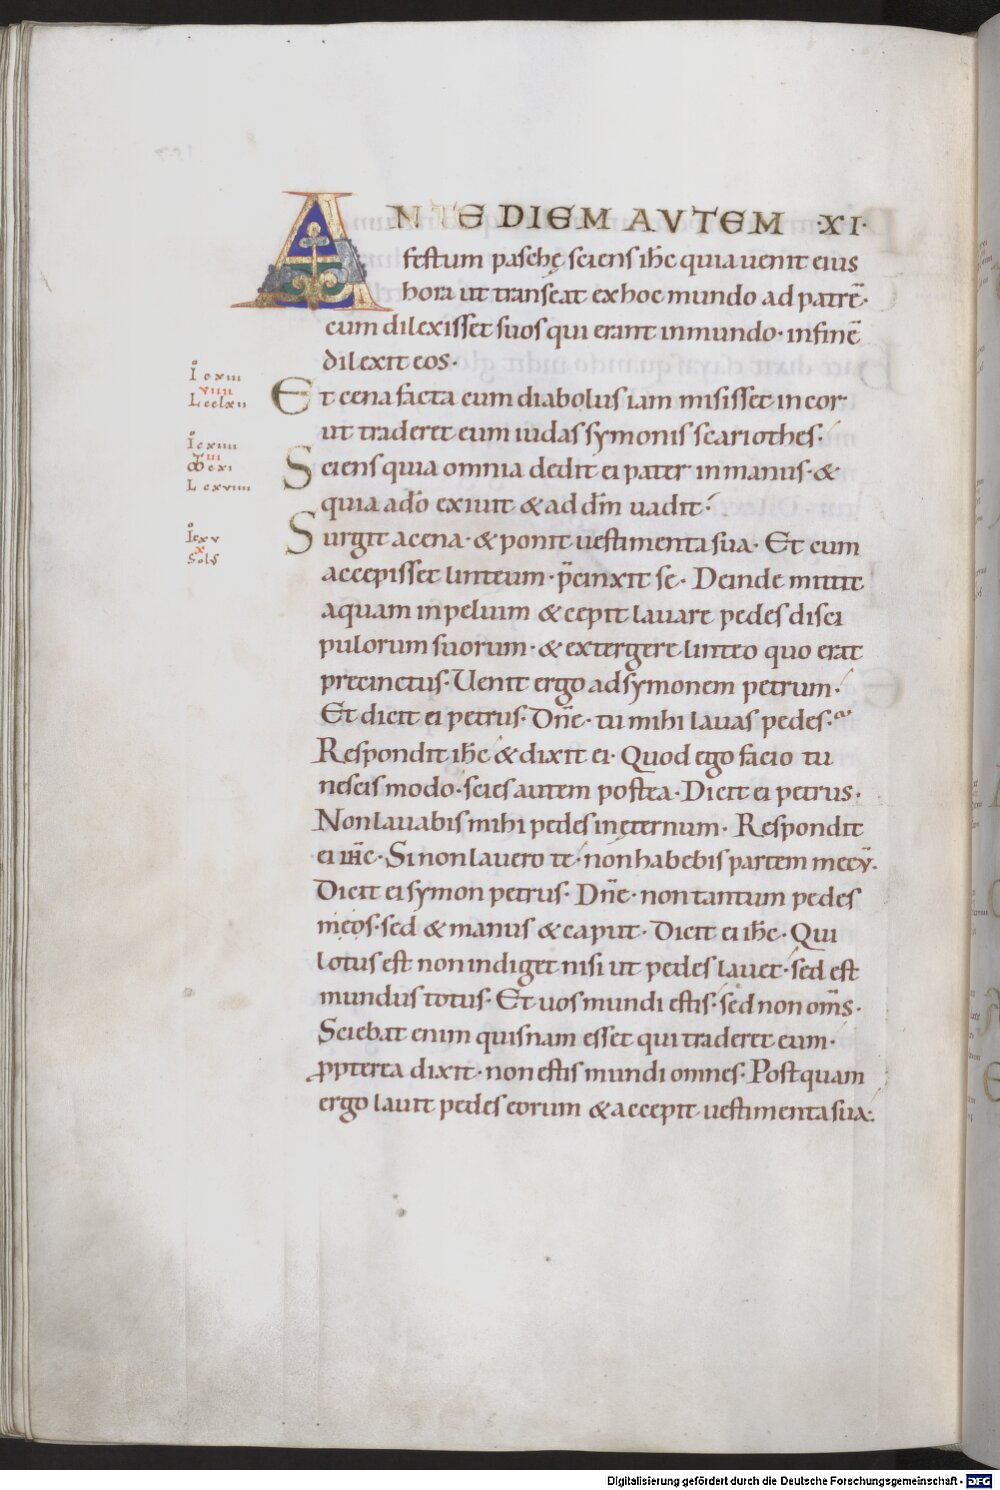 ANTE DIEM AVTEM ·XI·
festum paschę sciens ih̅c quia uenit eius
hora ut transeat ex hoc mundo ad patrē·
cum dilexisset suos qui erant in mundo· in finē
dilexit eos·
Et cena facta cum diabolus iam misisset in cor
ut traderet eum iudas symonis scariothes·
Sciens quia omnia dedit ei pater in manus· &
quia a do̅ exiuit & ad dm̅ uadit·
Surgit a cena· & ponit uestimenta sua· Et cum
accepisset linteum· p̅cinxit se· Deinde mittit
aquam in peluim & cepit lauare pedes disci
pulorum suorum· & extergere linteo quo erat
precinctus· Uenit ergo ad symonem petrum·
Et dicit ei petrus· Dn̅e· tu mihi lauas pedes·
Respondit ih̅c & dixit ei· Quod ego facio tu
nescis modo· scies autem postea· Dicit ei petrus·
Non lauabis mihi pedes in ęternum· Respondit
ei ih̅c· Si non lauero te· non habebis partem mecū·
Dicit ei symon petrus· Dn̅e· non tantum pedes
meos· sed & manus & caput· Dicit ei ih̅c· Qui
lotus est non indiget nisi ut pedes lauet· sed est
mundus totus· Et uos mundi estis· sed non om̅s·
Sciebat enim quisnam esset qui traderet eum·
ꝓpterea dixit· non estis mundi omnes· Postquam
ergo lauit pedes eorum & accepit uestimenta sua·
Io cxiii
viiii
L cclxii
Io cxiiii
iii
M cxi
L cxviiii
Io cxv
x
Sols
Digitalisierung gefördert durch die Deutsche Forschungsgemeinschaft - DFG